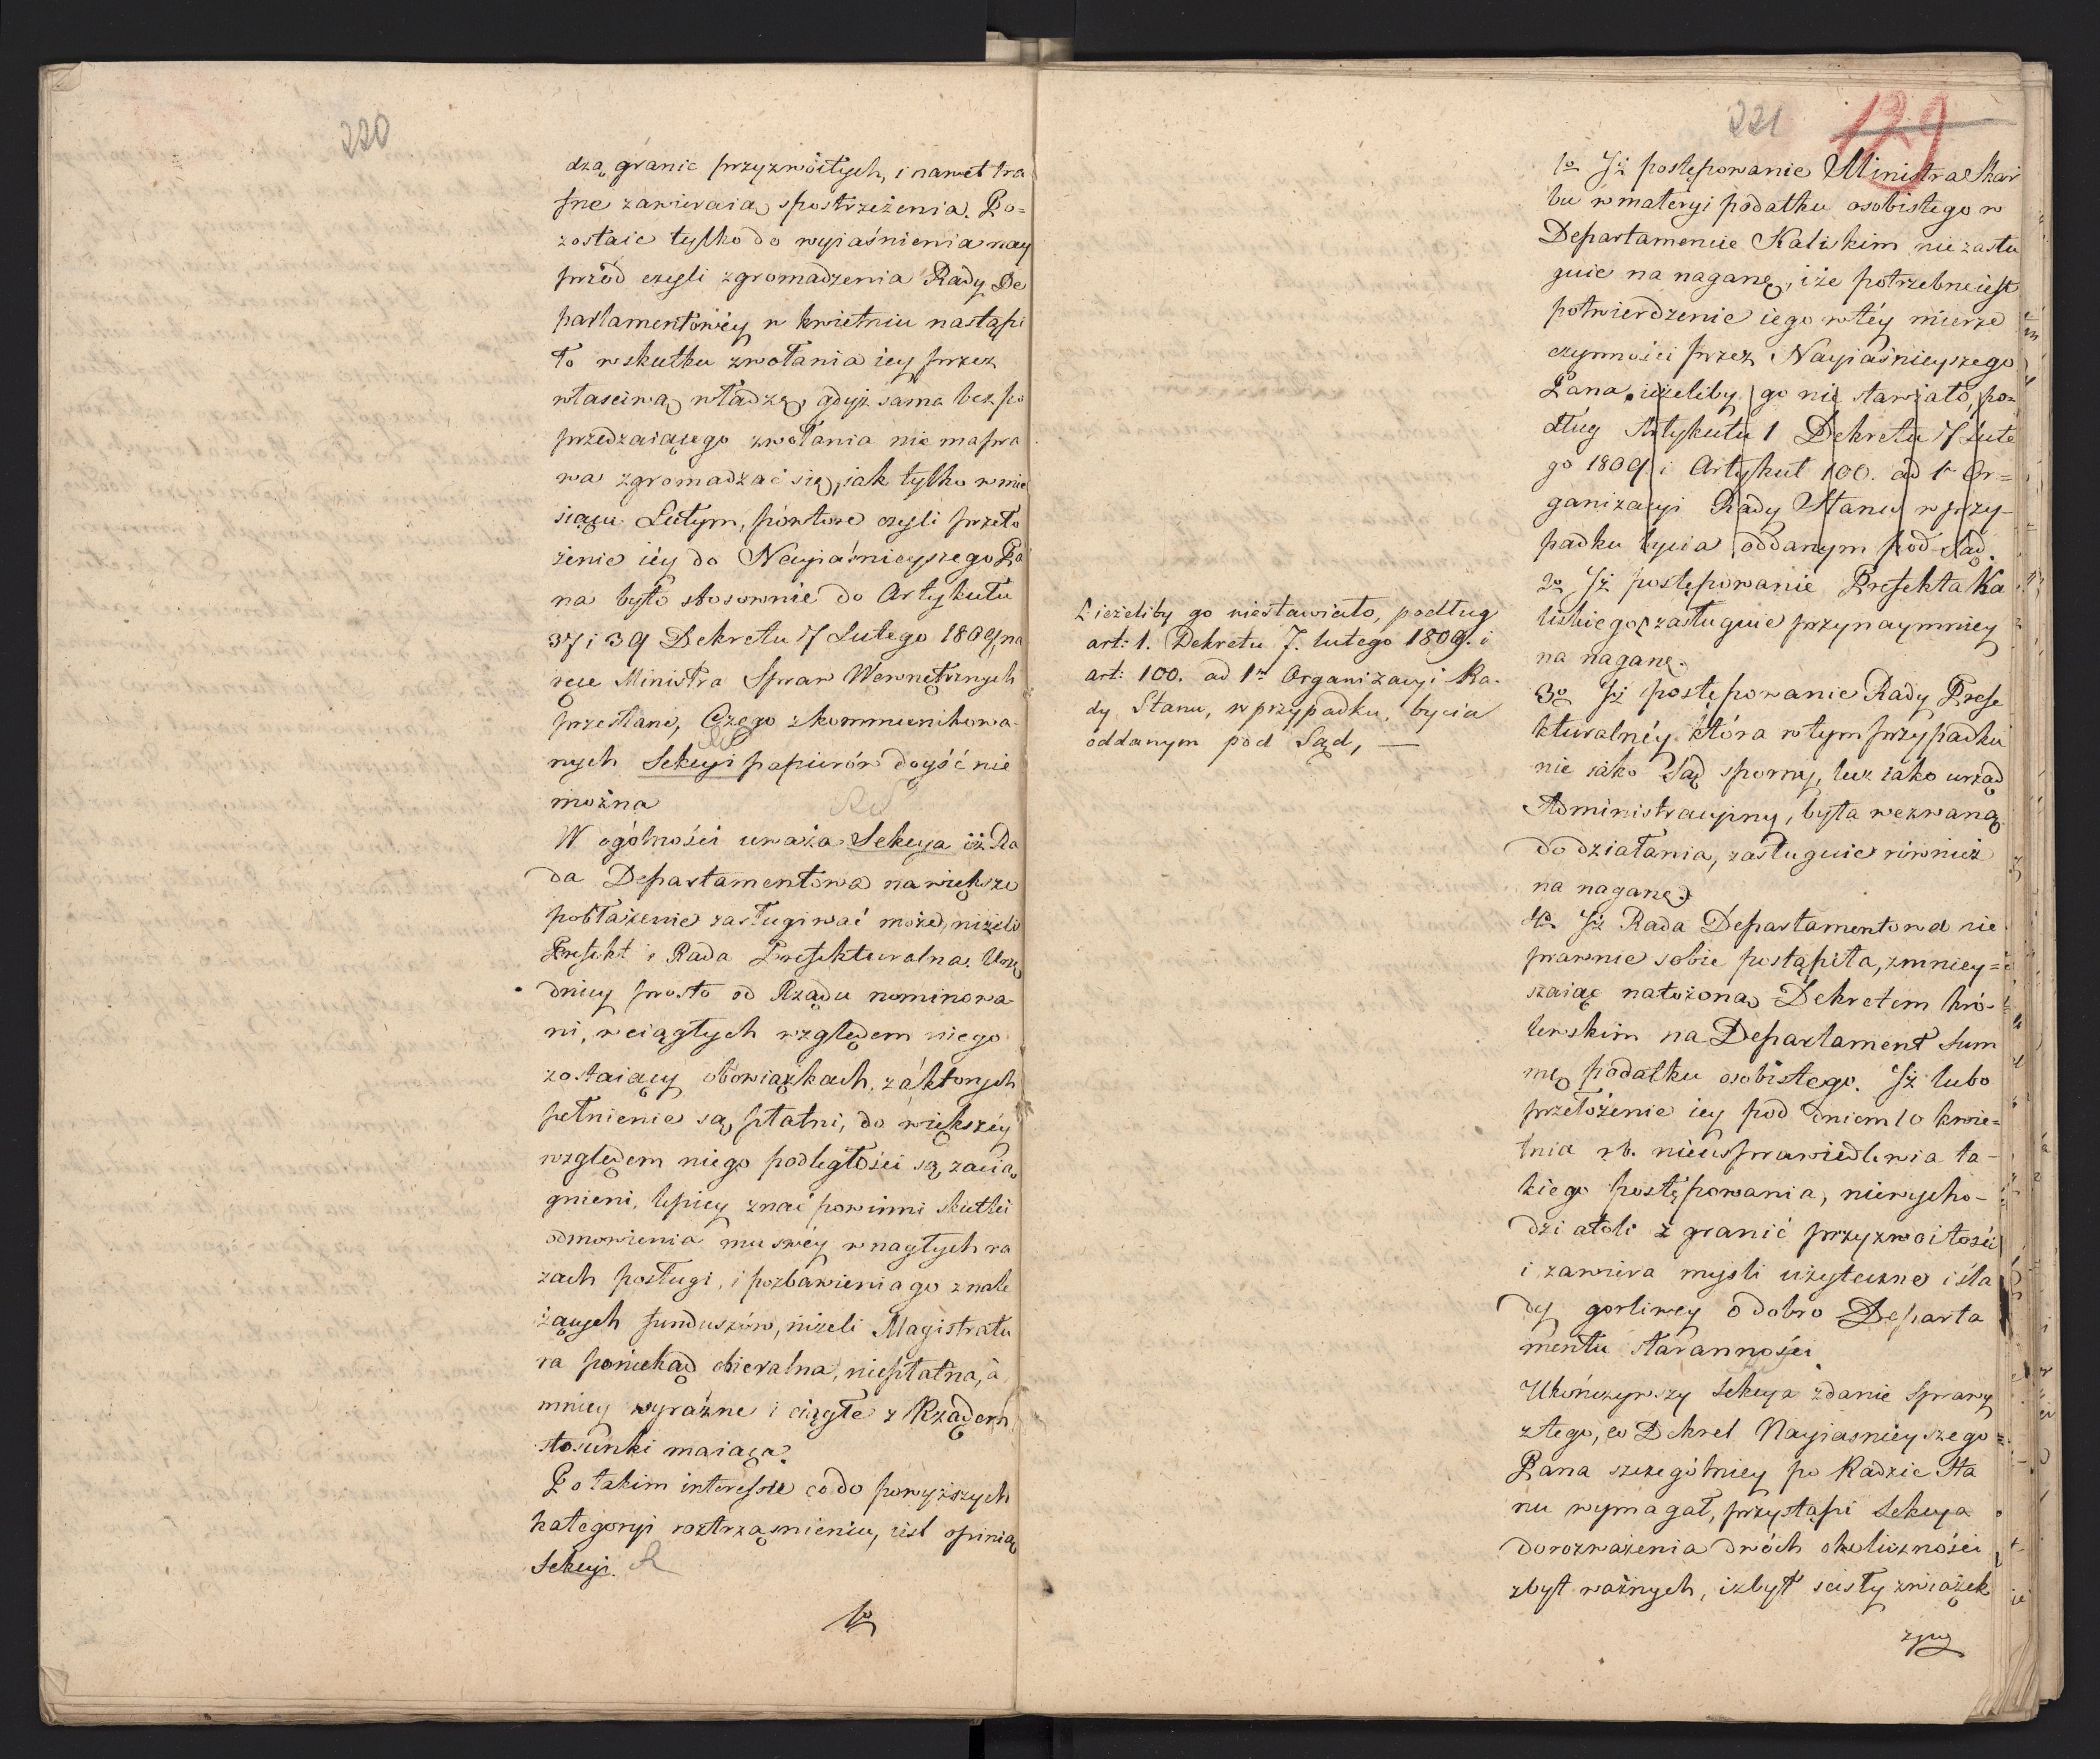 220
dzą granic przyzwoitych, i nawet tra
fne zawieraią spostrzeżenia. Po=
zostaie tylko do wyiaśnienia nay
przód czyli zgromadzenia Rady De
partamentowéy w kwietniu nastąpi
ło w skutku zwołania iey przez
właściwą władzę, gdyż sama bez po
przedzaiącego zwołania nie ma pra
wa zgromadzać się, iak tylko w mie
siącu Lutym, powtore czyli przeło
żenie iéy do Nayiaśnieyszego Pa
na było stosownie do Artykułu
37 i 39 Dekretu 7 Lutego 1809, na
ręce Ministra Spraw Wewnętrznych
przesłane, Czego z kommunikowa-
nych Sekcyi papierów doyść nie
można
W ogólności uważa Sekcya iż Ra
da Departamentowa na większe
pobłażenie zasługiwać może, niżeli
Prefekt i Rada Prefekturalna. Urzę
dnicy prosto od Rządu nominowa-
ni, w ciągłych względem niego
zostaiący obowiązkach, za których
pełnienie są płatni, do większéy
względem niego podległości są zacią
gnieni, lepiey znać powinni skutki
odmowienia mu swéy w nagłych ra
zach posługi, i pozbawienia go z nale
żących funduszów, niżeli Magistratu
ra poniekąd obieralna, niepłatna, a
mniey wyraźne i ciągłe z Rządem
stosunki maiąca.
Po takim interesse co do powyższych
kategoryi roztrząśnieniu, iest opinią
Sekcyi.
1o
221
129
1o Iż postępowanie Ministra Skar
bu w materyi podatku osobistego w
Departamencie Kaliskim nie zasłu
guie na naganę, i że potrzebne iest
potwierdzenie iego w téy mierze
czynności przez Nayiaśnieyszego
Pana, ieżeliby go nie stawiało, po=
dług Artykułu 1 Dekretu 7 Lute
go 1809. i Artykuł 100. ad 1m Or=
ganizacyi Rady Stanu w przy-
padku bycia oddanym pod Sąd.
2o Iż postępowanie Prefekta Ka
liskiego zasługuie przynaymniey
na naganę.
3o Iż postępowanie Rady Prefe
kturalnéy która w tym przypadku
nie iako Sąd sporny, lecz iako urząd
Administracyiny, była wezwaną
do działania, zasługuie również
na naganę.
4o Iż Rada Departamentowa nie
prawnie sobie postąpiła, zmniey=
szaiąc nałożoną Dekretem kró-
lewskim na Departament Sum
mę podatku osobistego. Iż lubo
przełożenie iey pod dniem 10 kwie=
tnia r.b. nieusprawiedliwia ta-
kiego postępowania, niewycho-
dzi atoli z granic przyzwoitości
i zawiera myśli użyteczne i śla
dy gorliwey o dobro Departa
mentu staranności
Ukończywszy Sekcya zdanie sprawy
z tego, co Dekret Nayiaśnieyszego=
Pana szczególniey po Radzie Sta
nu wymagał, przystąpi Sekcya
do rozważenia dwóch okoliczności
zbyt ważnych, i zbyt ścisły związek
ieżeliby go niestawiało, podług
art: 1. Dekretu 7. lutego 1809. i
art: 100. ad 1m Organizacyi Ra-
dy Stanu, w przypadku, bycia
oddanym pod Sąd, —